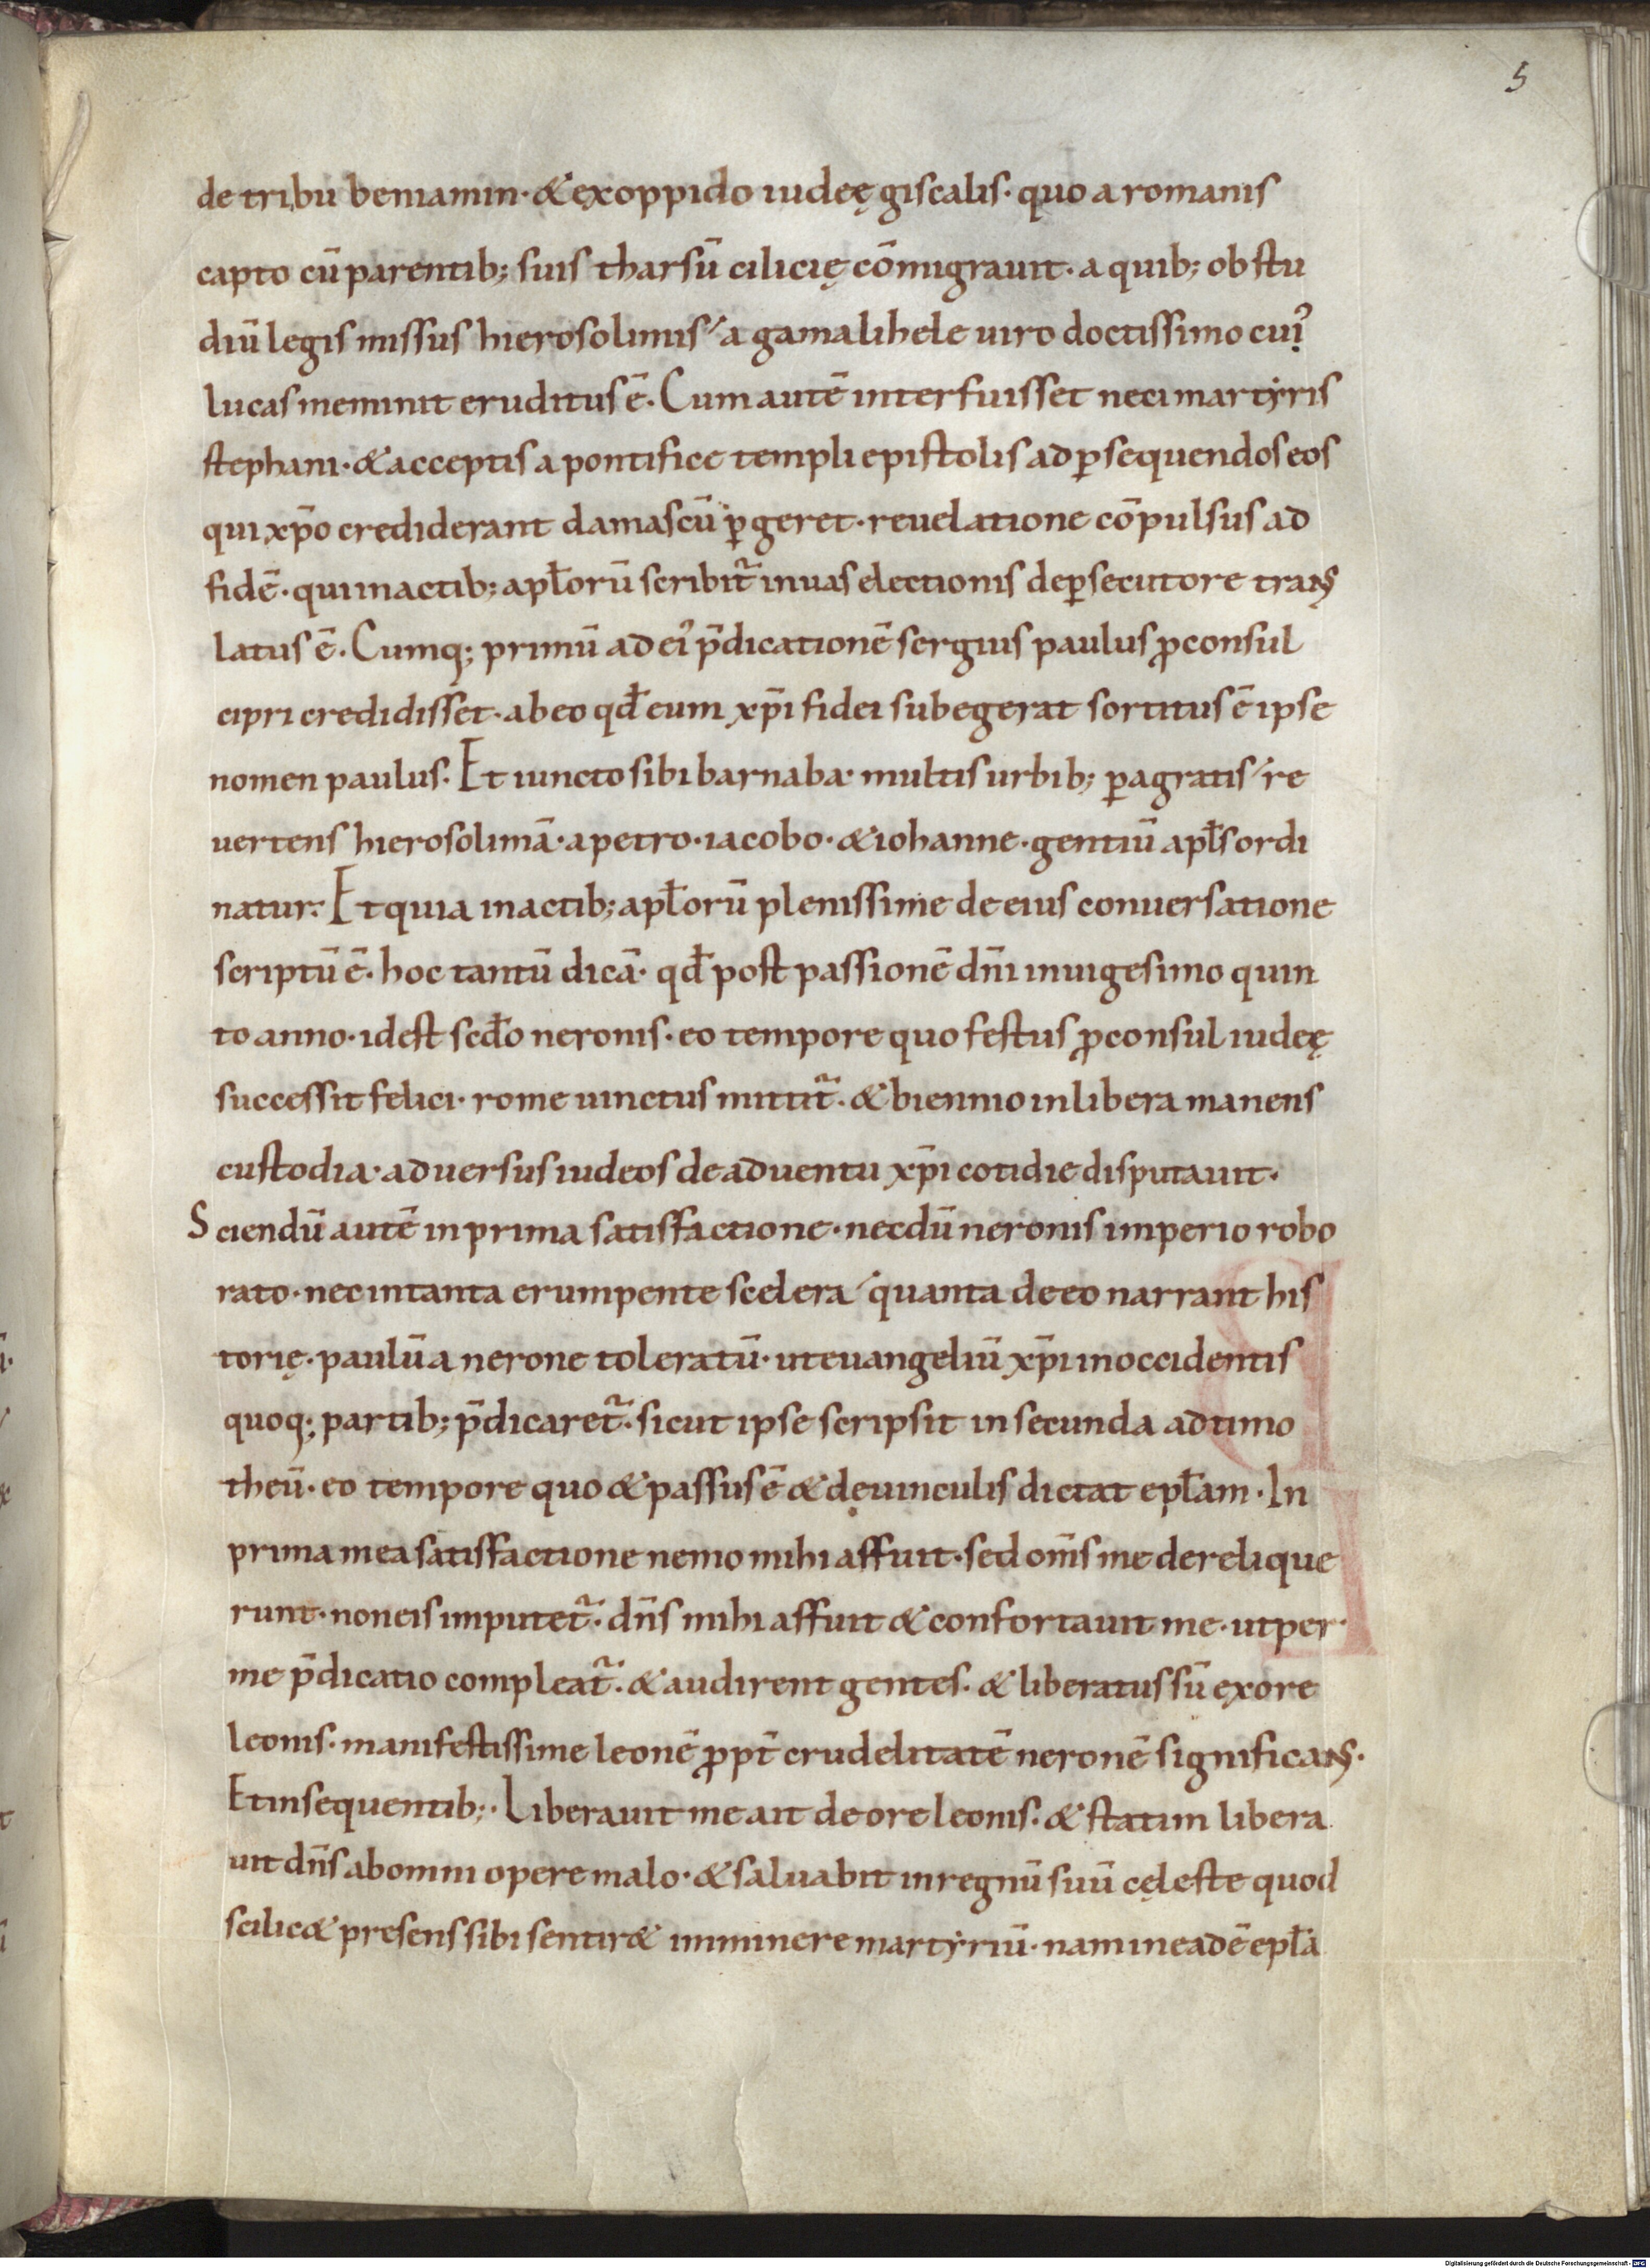 5
de tribu beniamin· & exoppido iudeę giscalis· quo a romanis
capto cū parentib; suis tharsū cilicię cōmigrauit· a quib; ob stu
diū legis missus hierosolimis a gamalihele uiro doctissimo cuiꝰ
lucas meminit eruditus ē. Cum autē interfuisset neci martyris
stephani· & acceptis a pontifice templi epistolis ad ꝑsequendos eos
qui xp̄o crediderant damascū ꝑgeret· reuelatione cōpulsus ad
fidē· qui in actib; apl̄orū scribit̃ in uas electionis de ꝑsecutore trans
latus ē. Cumq; primū ad eiꝰ p̄dicationē sergius paulus ꝓconsul
cipri credidisset· ab eo qđ eum xp̄i fidei subegerat sortitus ē ipse
nomen paulus. Et iuncto sibi barnaba· multis urbib; ꝑagratis re
uertens hierosolimā· a petro· iacobo· & iohanne· gentiū apl̄s ordi
natur. Et quia in actib; apl̄orū plenissime de eius conuersatione
scriptū ē. hoc tantū dicā· qđ post passionē dn̄i in uigesimo quin
to anno· idest scđo neronis· eo tempore quo festus ꝓconsul iudeę
successit felici· rome uinctus mittit̃. & biennio in libera manens
custodia· aduersus iudeos de aduentu xp̄i cotidie disputauit·
Sciendū autē in prima satisfactione· necdū neronis imperio robo
rato· nec in tanta erumpente scelera quanta de eo narrant his
torię· paulū a nerone toleratū· ut euangeliū xp̄i in occidentis
quoq; partib; p̄dicaret̃. sicut ipse scripsit in secunda ad timo
theū· eo tempore quo & passus ē & dęuinculis dictat epl̄am· In
prima mea satisfactione nemo mihi affuit· sed om̄s me derelique
runt· non eis imputet̃. dn̄s mihi affuit & confortauit me· ut per
me p̄dicatio compleat̃. & audirent gentes. & liberatus sū ex ore
leonis· manifestissime leonē ꝓpt̄ crudelitatē neronē significans·
Et in sequentib;· Liberauit me ait de ore leonis. & statim libera
uit dn̄s ab omni opere malo· & saluabit in regnū suū cęleste quod
scilic& presens sibi sentir& imminere martyriū· nam in eadē epl̄a